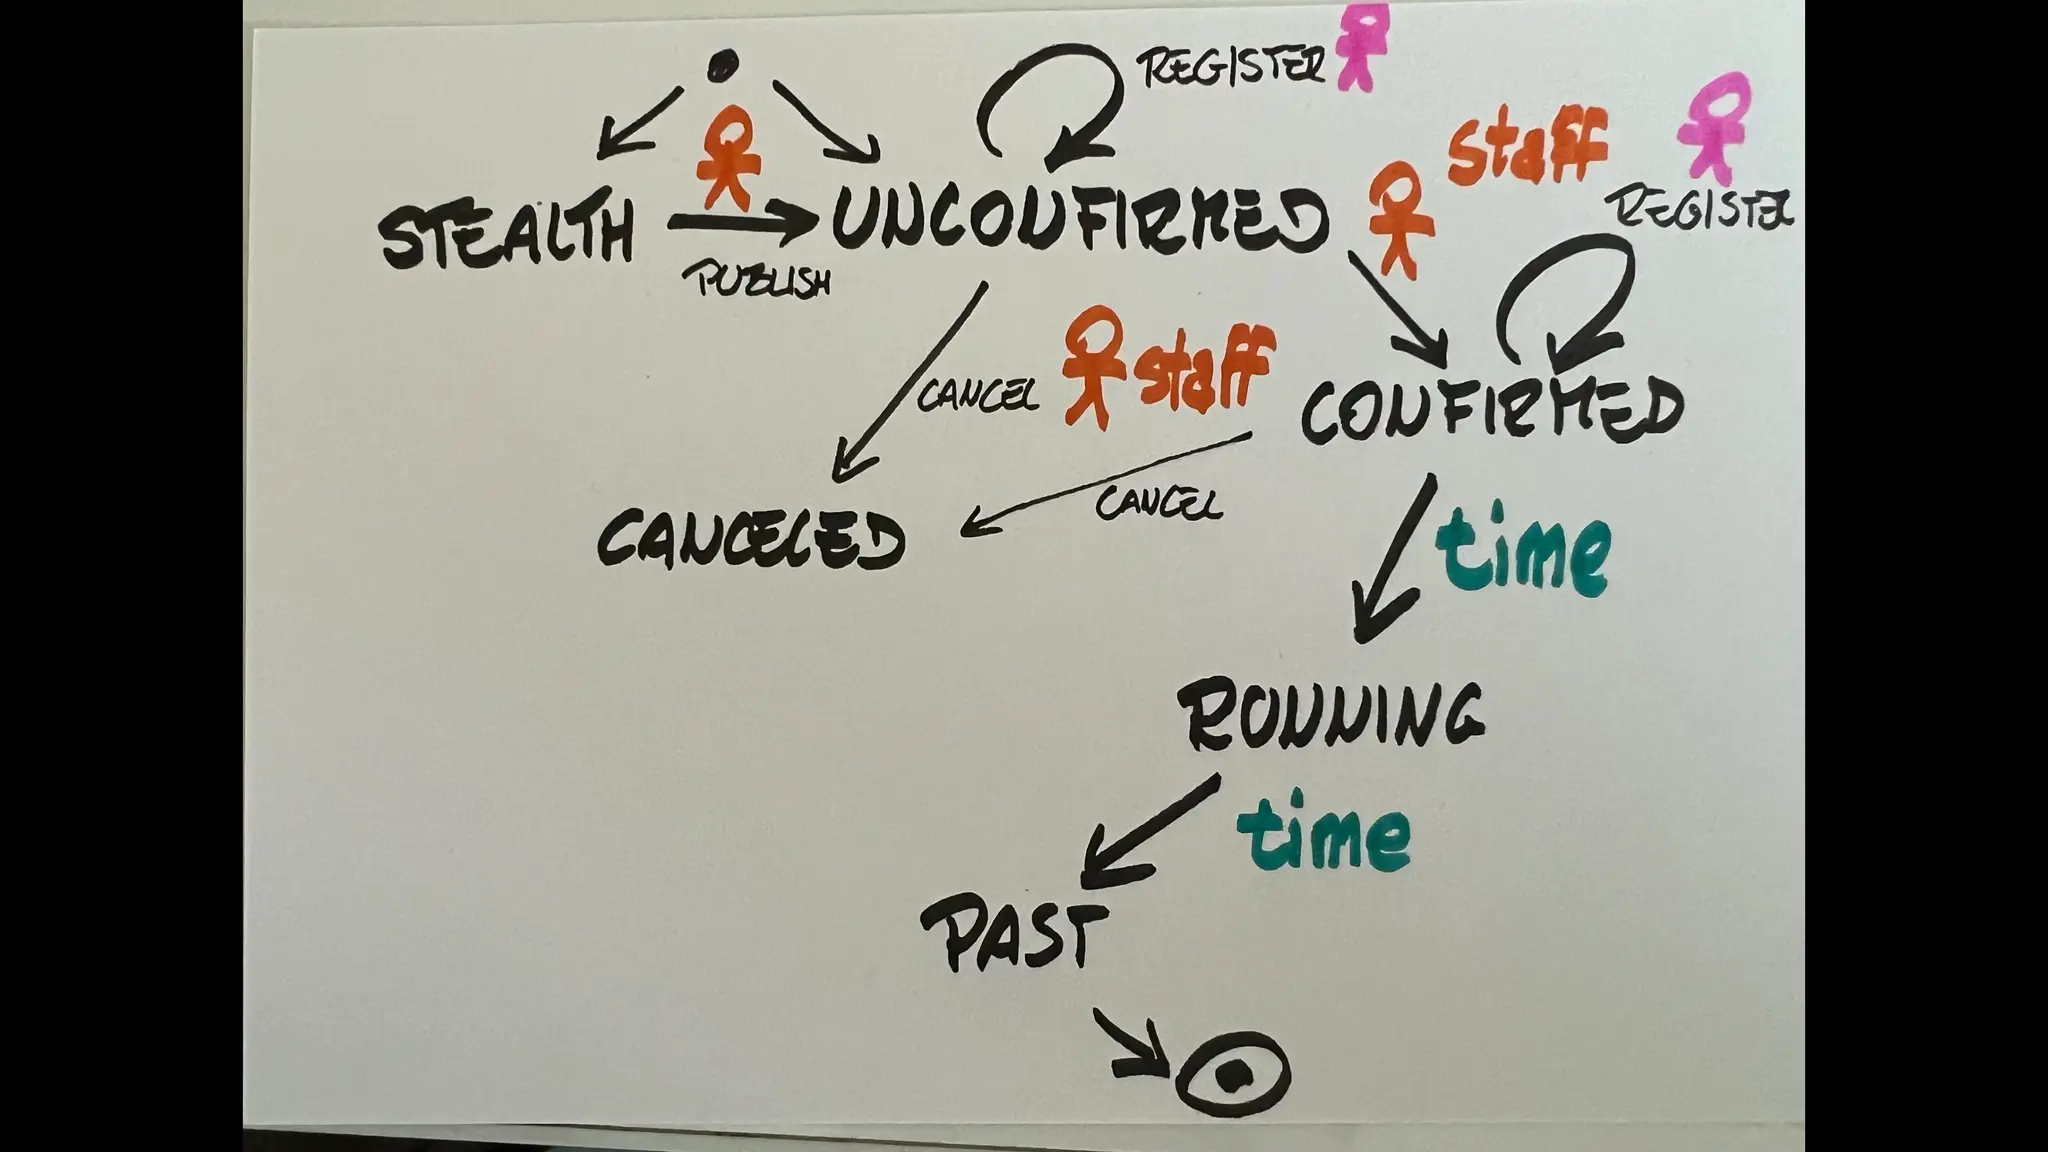 REGISTER
staff
REGISTER
STEALTH
UNCONFIRMED
PUBLISH
CANCEL
staff
CONFIRMED
CANCEL
CANCELED
time
RUNNING
time
PAST